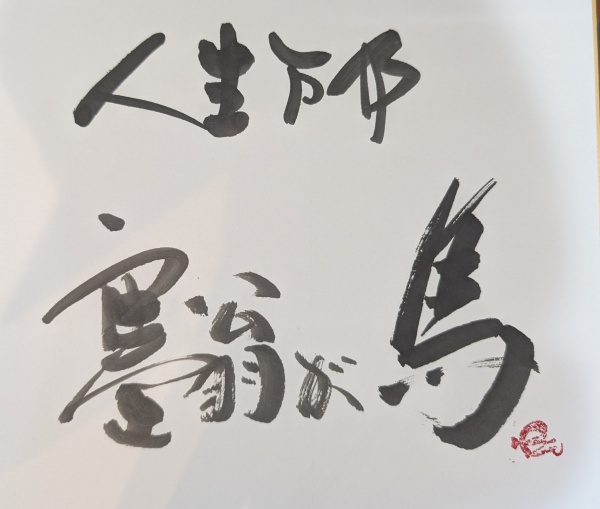 人生万事
塞翁が馬